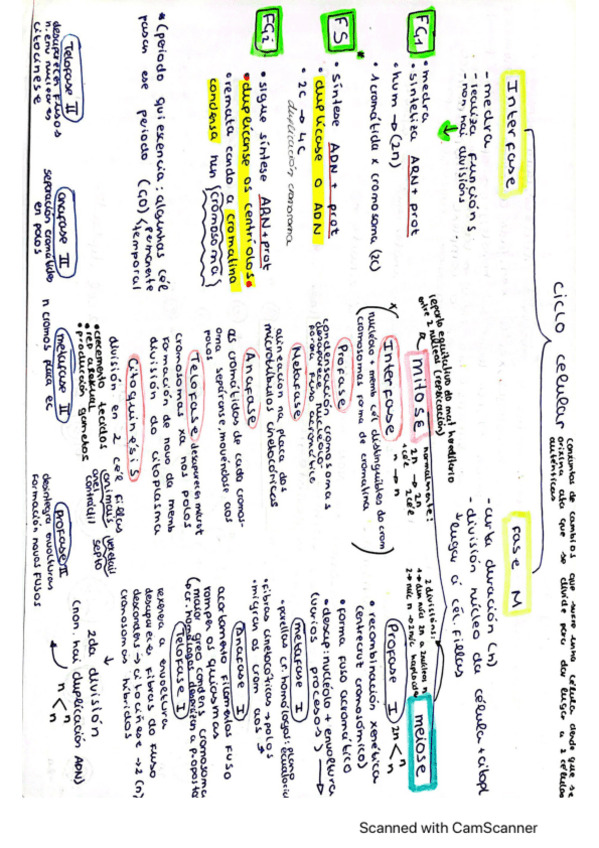 Ciclo celular
conxunto de cambios que sufre unha célula dende que se
orixina ata que se divide para dar lugar a 2 células
auténticas
Interfase
- medra
- realiza funcións
- non hai divisións
FG1
• medra
• sintetiza ARN + prot
• hum → (2n)
• 1 cromátida x cromosoma (2c)
FS
• síntese ADN + prot
• duplícase o ADN
• 2c → 4c
duplicación cromosoma
FG2
• sigue síntese ARN + prot
• duplícanse os centríolos
• remata cando a cromatina
condensa nun (cromosoma)
* (período quiescencia: algunhas cél
pasan ese período (G0) (permanente
temporal
Fase M
- curta duración (h)
- división núcleo da célula + citopl
lugar a cél. fillas
mitose
reparto equitativo do mat hereditario
entre 2 núcleos (replicación)
normalmente:
2n → 2n
1 cél → 2 cél
n → n
Interfase
(núcleolo + memb cél distinguibles do crom
(cromosomas forma de cromatina)
Profase
condensación cromosomas
desaparece nucleolo
forma fuso acromático
Metafase
alineación na placa dos
microtúbulos cinetocóricos
Anafase
as cromátidas de cada cromo-
soma sepáranse, movéndose aos
polos
Telofase desaparecen microt
cromosomas xa nos polos
formación de novo da memb
división do citoplasma
Citoquinésis
división en 2 cél fillas
• crecemento tecidos
• rep asexual
• produción gametos
animais
anel
contráctil
vexetais
septo
meiose
2 divisións:
Profase I
2n < n n
• recombinación xenética
(entrecruz cromosómico)
• forma fuso acromático
• desap: nucléolo + envoltura
(varios procesos) →
metafase I
• parellas cr. homólogos: plano
ecuatorial
• fibras cinetocóricas → polos
• migran os crom aos
Anafase I
acortamento filamentos fuso
rompen quiasmas
(maior grao condens cromosoma
Telofase I
rexenera a envoltura
desaparece fibras do fuso
descondens → citocinese → 2 (n)
cromosomas híbridos
2da división
n < n n
(non hai duplicación ADN)
Profase II
desintegra envolturas
formación novos fusos
metafase II
n cromos placa ec
anafase II
separación cromátidas
en polos
Telofase II
desaparecen fusos
n. env nucleares
citocinese
Scanned with CamScanner